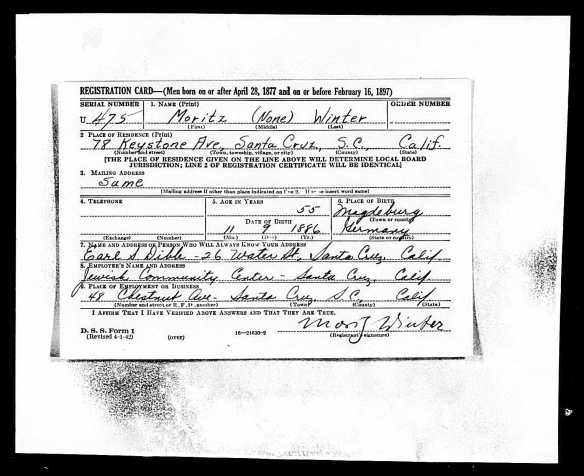 REGISTRATION CARD—(Men born on or after April 28, 1877 and on or before February 16, 1897)
SERIAL NUMBER 1. NAME (Print) ORDER NUMBER
U 475 Moritz (None) Winter
(First) (Middle) (Last)
2. PLACE OF RESIDENCE (Print)
78 Keystone Ave, Santa Cruz, S.C., Calif.
(Number and street) (Town, township, village, or city) (County) (State)
[THE PLACE OF RESIDENCE GIVEN ON THE LINE ABOVE WILL DETERMINE LOCAL BOARD
JURISDICTION; LINE 2 OF REGISTRATION CERTIFICATE WILL BE IDENTICAL]
3. MAILING ADDRESS
Same
[Mailing address if other than place indicated on line 2. If same insert word same]
4. TELEPHONE 5. AGE IN YEARS 6. PLACE OF BIRTH
55 Magdeburg
DATE OF BIRTH (Town or county)
11 9 1886 Germany
(Exchange) (Number) (Mo.) (Day) (Yr.) (State or country)
7. NAME AND ADDRESS OF PERSON WHO WILL ALWAYS KNOW YOUR ADDRESS
Earl S Dible - 26 Water St, Santa Cruz, Calif.
8. EMPLOYER'S NAME AND ADDRESS
Jewish Community Center - Santa Cruz, Calif.
9. PLACE OF EMPLOYMENT OR BUSINESS
48 Chestnut Ave - Santa Cruz S.C. Calif
(Number and street or R. F. D. number) (Town) (County) (State)
I AFFIRM THAT I HAVE VERIFIED ABOVE ANSWERS AND THAT THEY ARE TRUE.
Moritz Winter
D. S. S. Form 1 16—21630-2 (Registrant's signature)
(Revised 4-1-42) (over)